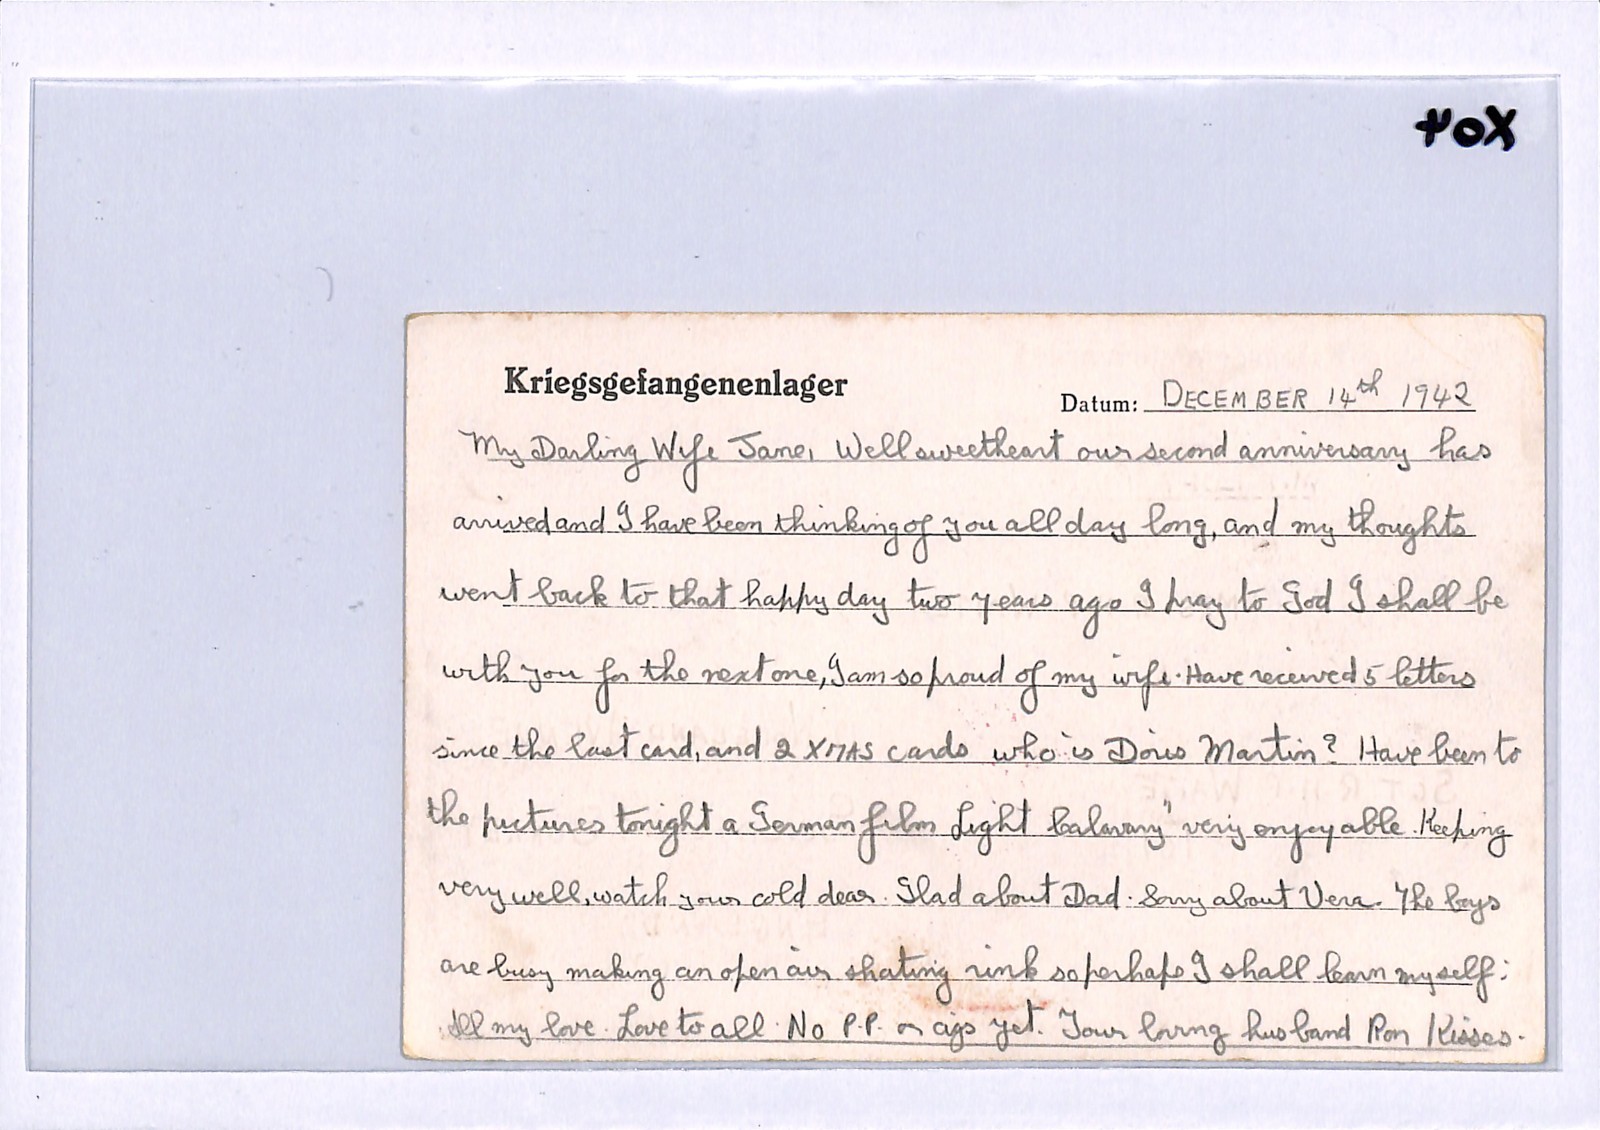 XOX
Kriegsgefangenenlager
Datum: DECEMBER 14th 1942
My Darling Wife Jane, Well sweetheart our second anniversary has
arrived and I have been thinking of you all day long, and my thoughts
went back to that happy day two years ago I pray to God I shall be
with you for the next one, I am so proud of my wife. Have received 5 letters
since the last card, and 2 XMAS cards who is Doris Martin? Have been to
the pictures tonight a German film Light Calavary" very enjoyable. Keeping
very well, watch your cold dear. Glad about Dad. Sorry about Vera. The boys
are busy making an open air skating rink so perhaps I shall learn myself;
All my love. Love to all. No P.P. or cigs yet. Your loving husband Ron Kisses.